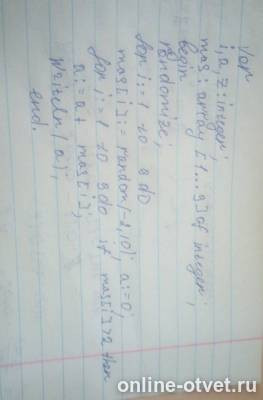 Var
i, a, z: integer;
mas: array [1...9] of integer;
begin
randomize;
for i:=1 to 9 do
mas[i]:= random(-2,10); a:=0;
for i:=1 to 9 do if mas[i]>2 then
a:= a+ mas[i];
Writeln(a);
end.
online-otvet.ru